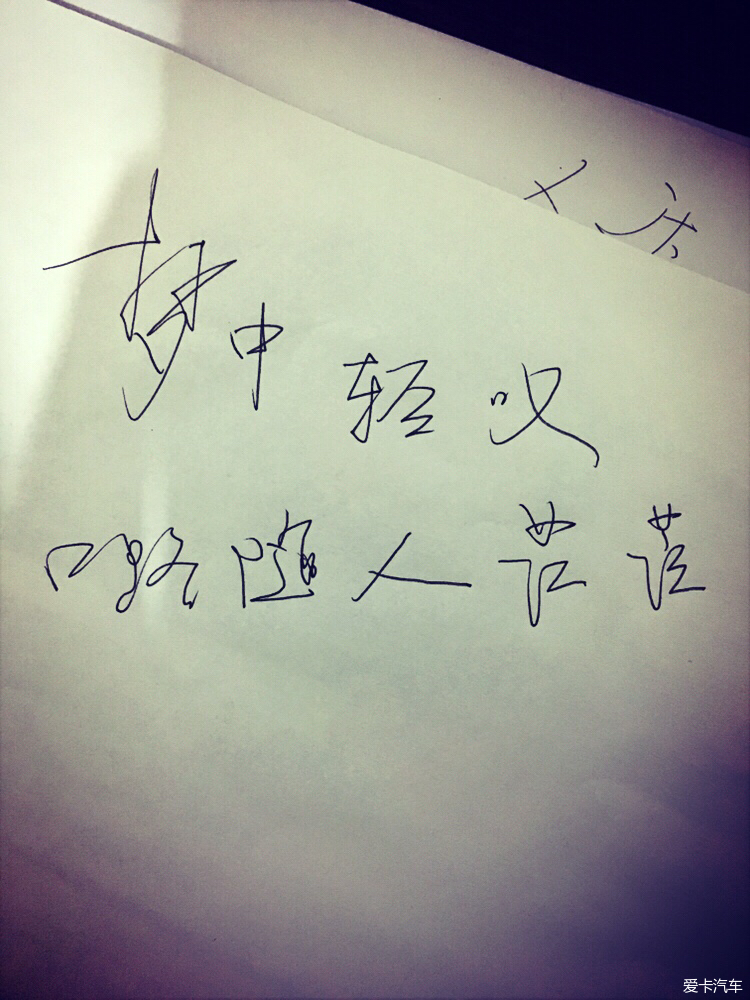 梦中轻叹
路随人茫茫
爱卡汽车